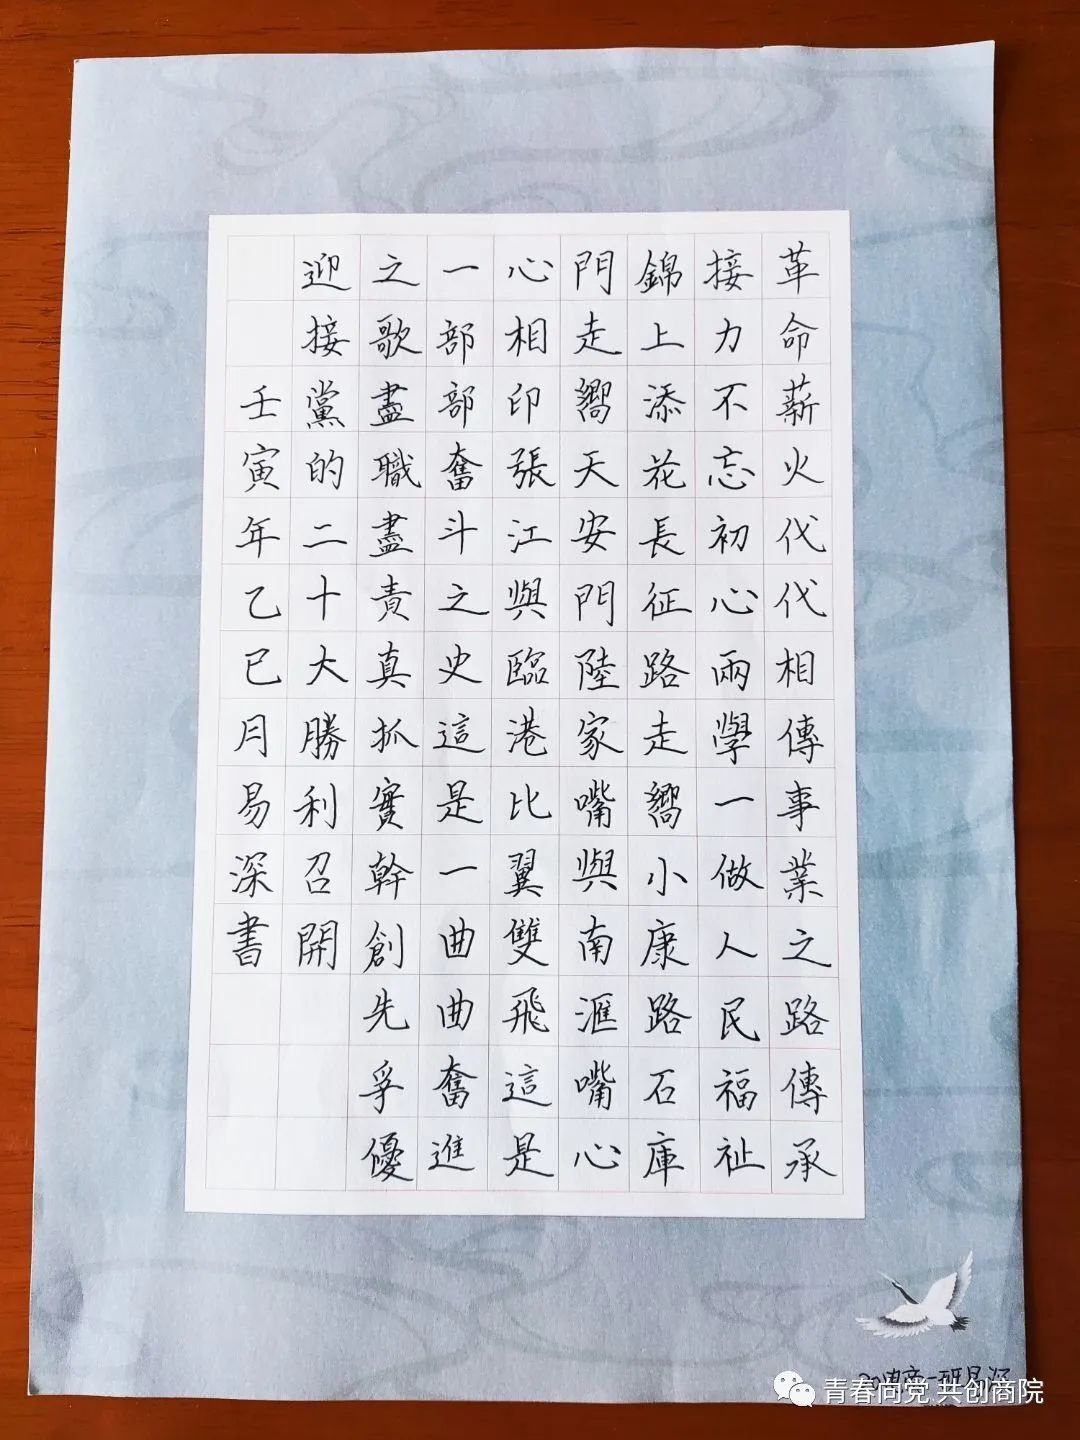 革命薪火代代相傳事業之路傳承
接力不忘初心兩學一做人民福祉
錦上添花長征路走嚮小康路石庫
門走嚮天安門陸家嘴與南滙嘴心
心相印張江與臨港比翼雙飛這是
一部部奮斗之史這是一曲曲奮進
之歌盡職盡責真抓實幹創先爭優
迎接黨的二十大勝利召開
壬寅年乙巳月易深書
青春向党 共创商院